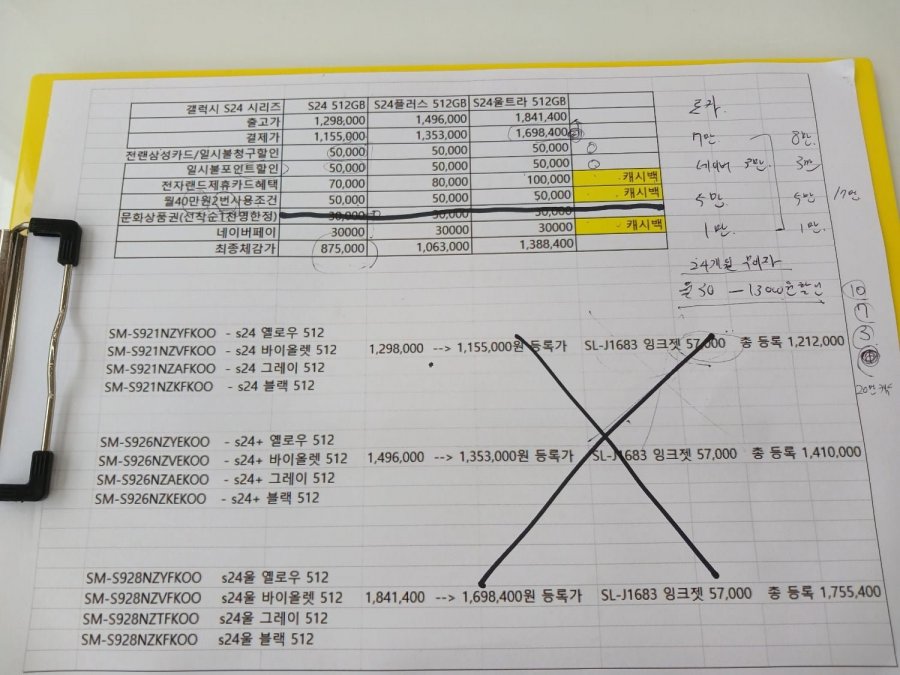 갤럭시 S24 시리즈 S24 512GB S24플러스 512GB S24울트라 512GB
출고가 1,298,000 1,496,000 1,841,400
결제가 1,155,000 1,353,000 1,698,400
전랜삼성카드/일시불청구할인 50,000 50,000 50,000
일시불포인트할인 50,000 50,000 50,000
전자랜드제휴카드혜택 70,000 80,000 100,000 캐시백
월40만원2번사용조건 50,000 50,000 50,000 캐시백
문화상품권(선착순1천명한정) 30,000 30,000 30,000
네이버페이 30000 30000 30000 캐시백
최종체감가 875,000 1,063,000 1,388,400
7만 8만
네이버 3만 3만
5만 5만 17만
1만 1만
24개월 무이자
월30 — 13000원할인
10
7
3
SM-S921NZYFKOO - s24 옐로우 512
SM-S921NZVFKOO - s24 바이올렛 512 1,298,000 --> 1,155,000원 등록가 SL-J1683 잉크젯 57,000 총 등록 1,212,000
SM-S921NZAFKOO - s24 그레이 512
SM-S921NZKFKOO - s24 블랙 512
SM-S926NZYEKOO - s24+ 옐로우 512
SM-S926NZVEKOO - s24+ 바이올렛 512 1,496,000 --> 1,353,000원 등록가 SL-J1683 잉크젯 57,000 총 등록 1,410,000
SM-S926NZAEKOO - s24+ 그레이 512
SM-S926NZKEKOO - s24+ 블랙 512
SM-S928NZYFKOO s24울 옐로우 512
SM-S928NZVFKOO s24울 바이올렛 512 1,841,400 --> 1,698,400원 등록가 SL-J1683 잉크젯 57,000 총 등록 1,755,400
SM-S928NZTFKOO s24울 그레이 512
SM-S928NZKFKOO s24울 블랙 512